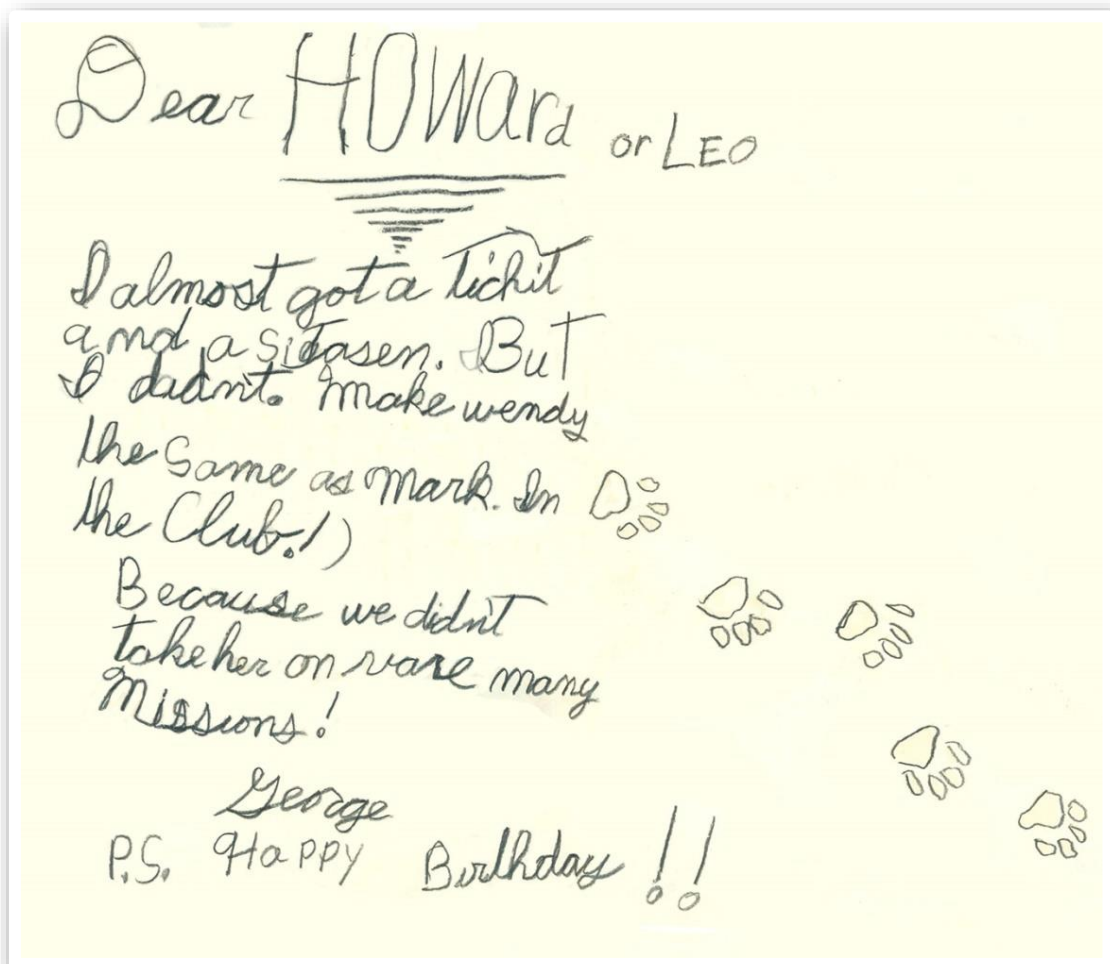 Dear HOWard or LEO
I almost got a tichit
and a sitasen. But
I dadnt. Make wendy
the Same as Mark. In
the Club!)
Because we didn't
take her on vare many
Missions!
George
P.S. Happy Birthday !!